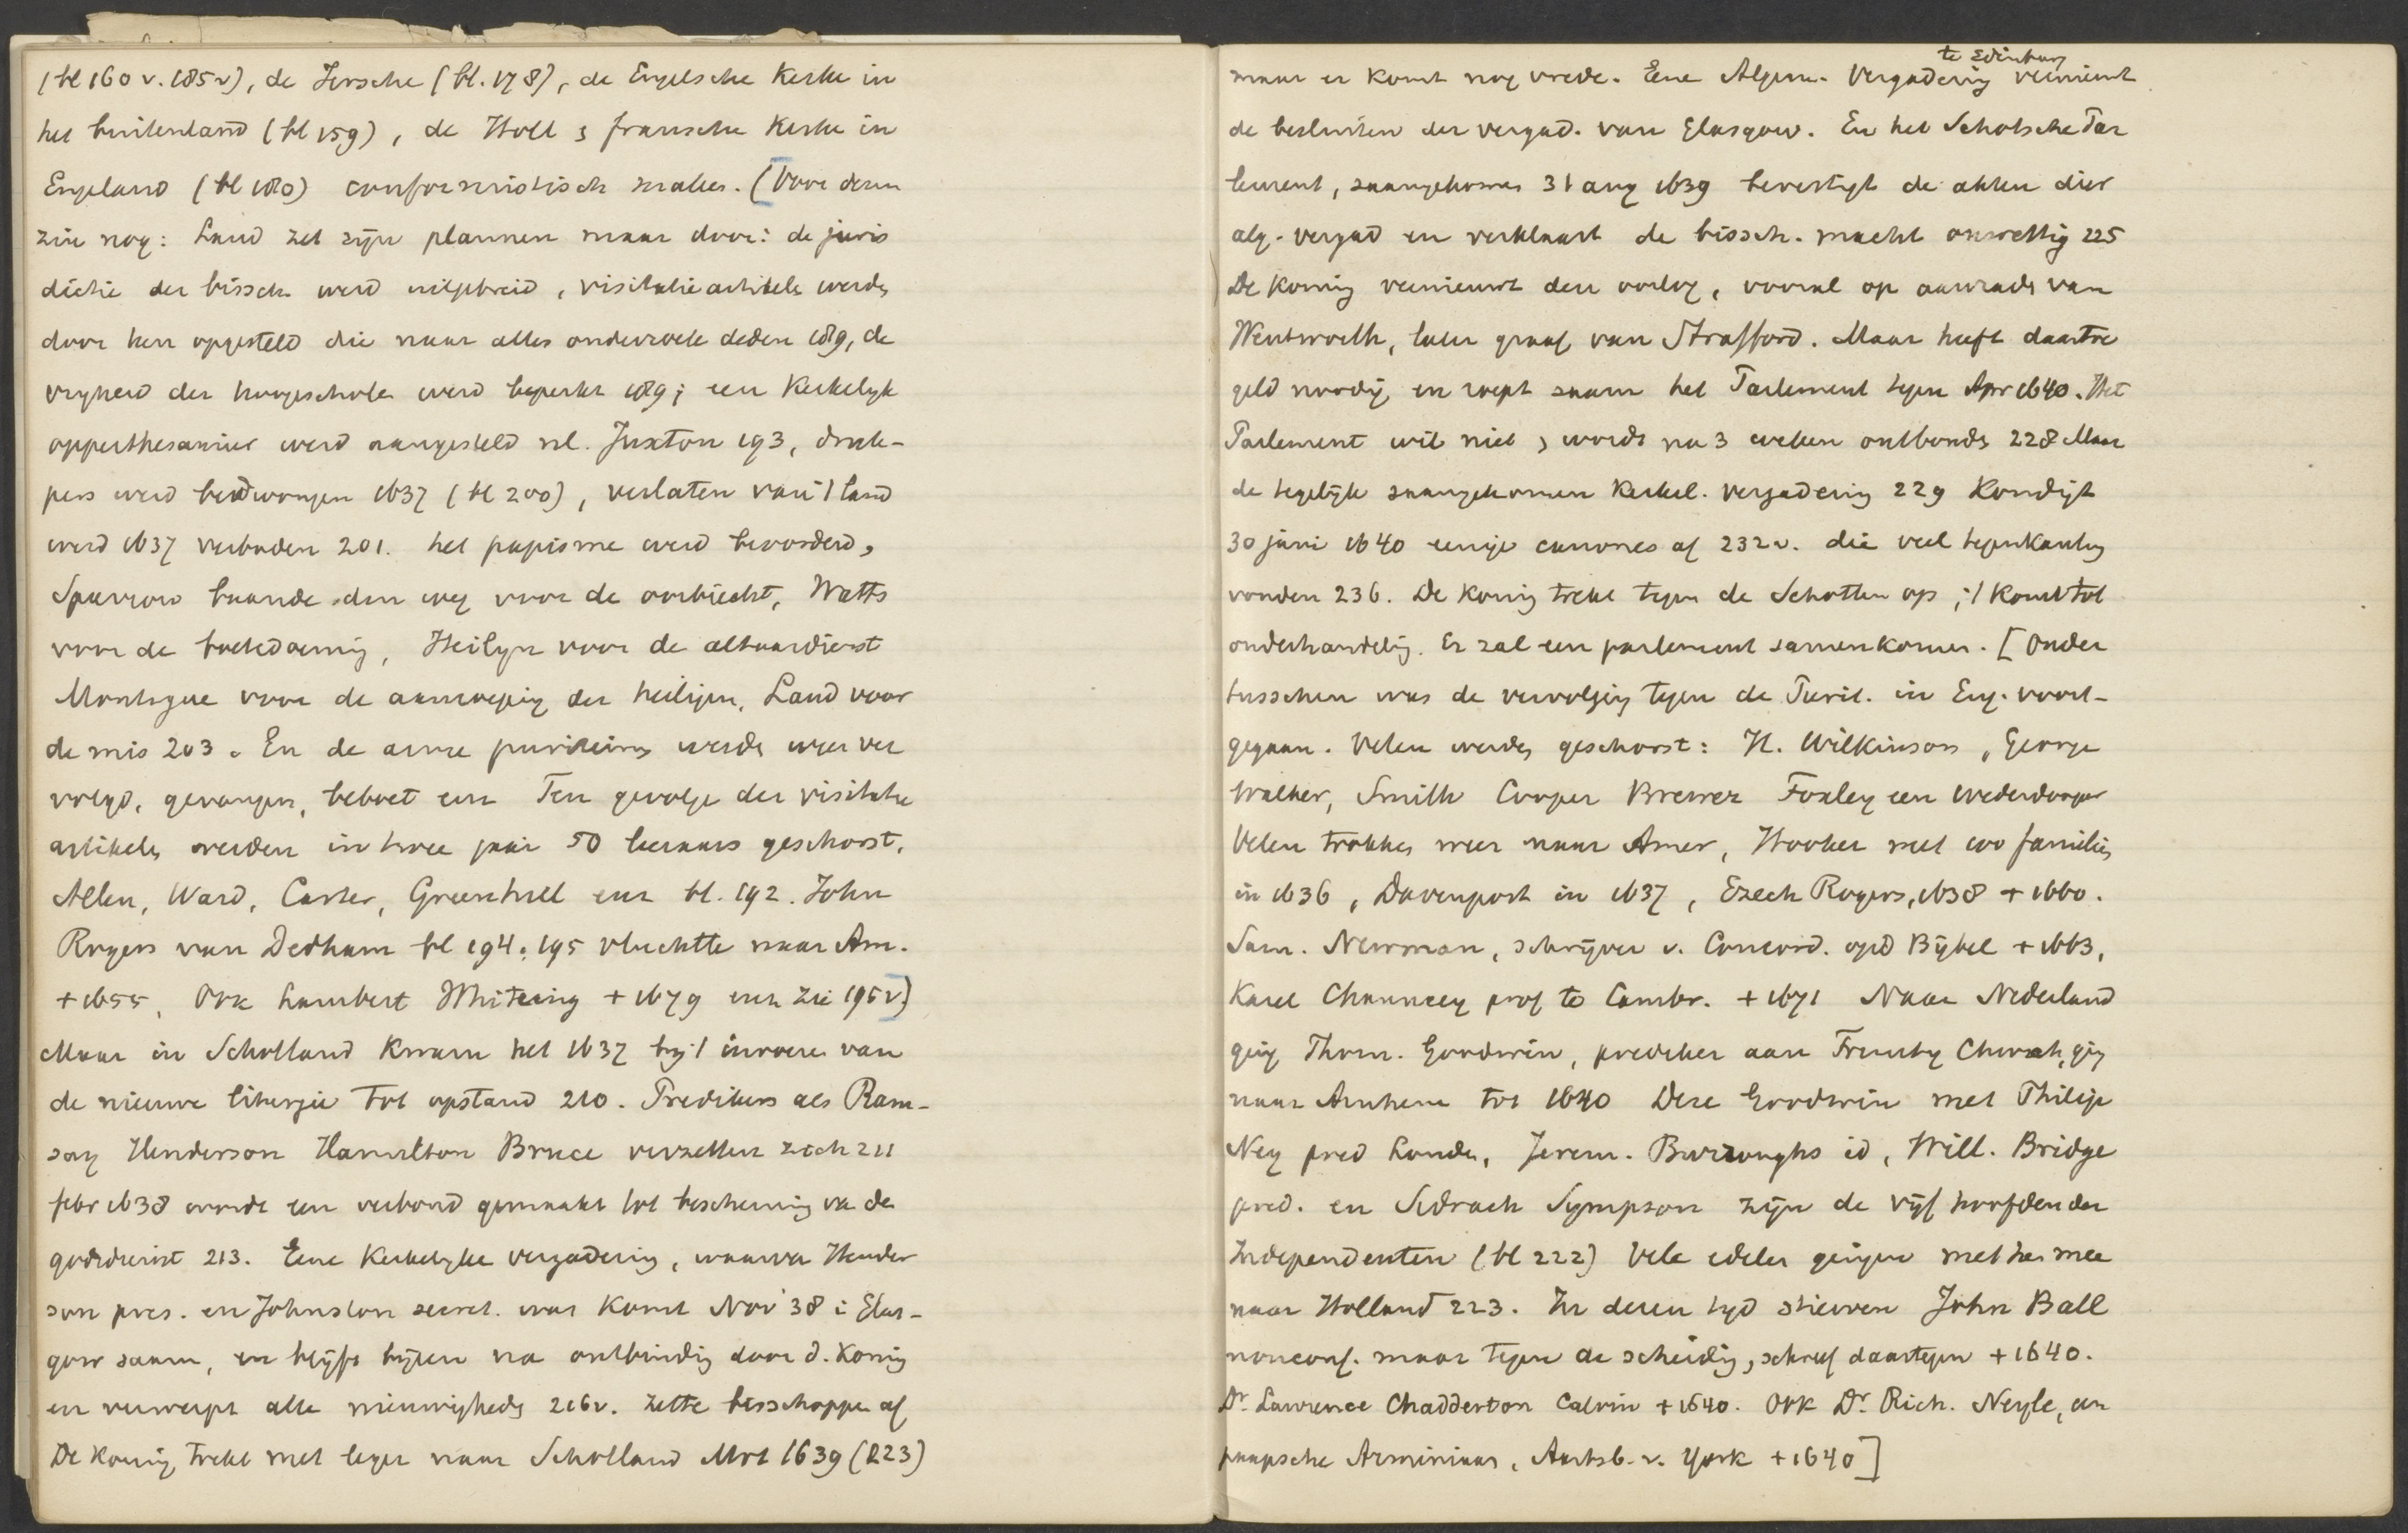 (bl 160 v. 185v), de Iersche (bl. 178), de Engelsche Kerke in
het buitenland (bl 159), de Holl & fransche Kerke in
Engeland (bl 180) conformistisch maken. (Voor dezen
zie nog: Laud zet zijn plannen maar door: de juris
dictie der bissch. werd uitgebreid, visitatieartikels werden
door hen opgesteld die naar alles onderzoek deden 189, de
vryheid der hoogescholen werd beperkt 189; een Kerkelyk
opperthesaurier werd aangesteld nl. Juxton 193, druk-
pers werd bedwongen 1637 (bl 200), verlaten van 't land
werd 1637 verboden 201. het papisme werd bevorderd,
Sparrow baande den weg voor de oorbiecht, Watts
voor de boetedoening, Heilyn voor de altaardienst
Montague voor de aanroeping der heiligen, Laud voor
de mis 203. En de arme puriteinen werden weer ver
volgd, gevangen, beboet enz Ten gevolge der visitatie
artikels werden in twee jaar 50 leeraars geschorst,
Allen, Ward, Carter, Greenhill enz bl. 192. John
Rogers van Dedham bl 194. 195 vluchtte naar Am.
+ 1655, Ook Lambert Whiteing + 1679 enz zie 195v.)
Maar in Schotland kwam het 1637 bij 't invoeren van
de nieuwe liturgie tot opstand 210. Predikers als Ram-
say Henderson Hamilton Bruce verzetten zich 211
febr 1638 wordt een verbond gemaakt tot bescherming va den
godsdienst 213. Eene Kerkelyke vergadering, waarvan Hender
son pres. en Johnston secret. was komt Nov '38 i Glas-
gow saam, en blijft bijeen na ontbinding door d. Konig
en verwerpt alle nieuwigheden 216v. zette bisschoppen af
De Konig trekt met leger naar Schotland Mrt 1639 (223)
maar er komt nog vrede. Eene Algem. Vergadering te Edinburg vernieuwt
de besluiten der vergad. van Glasgow. En het Schotsche Par
lement, saamgekomen 31 aug 1639 bevestigt de akten dier
alg. vergad en verklaart de bissch. macht onwettig 225
De koning vernieuwt den oorlog, vooral op aanraden van
Wentworth, later graaf van Strafford. Maar heeft daartoe
geld noodig en roept saam het Parlement tegen Apr 1640. Het
Parlement wil niet & wordt na 3 weken ontbonden 228 Maar
de tegelijk saamgekomen Kerkel. vergadering 229 Kondigt
30 juni 1640 eenige canones af 232v. die veel tegenkanting
vonden 236. De koning trekt tegen de Schotten op; 't komt tot
onderhandeling. Er zal een parlement samenkomen. [Onder
tusschen was de vervolging tegen de Purit. in Eng. voort-
gegaan. Velen werden geschorst: H. Wilkinson, George
Walker, Smith Cooper Brewer Foxley een wederdooper
Velen trokken weer naar Amer, Hooker met 100 families
in 1636, Davenport in 1637, Ezech Rogers, 1638 + 1660.
Sam. Newman, schrijver v. Concord. op d Bijbel + 1663,
Karel Chauncey prof te Cambr. + 1671 Naar Nederland
ging Thom. Goodwin, prediker aan Trinity Church, ging
naar Arnhem tot 1640 Deze Goodwin met Philip
Ney pred Londen, Jerem. Burroughs id, Will. Bridge
pred. en Sidrach Sympson zijn de vijf hoofden der
Independenten (bl 222) Vele edelen gingen met hen mee
naar Holland 223. In dezen tyd stierven John Ball
nonconf. maar tegen de scheiding, schreef daartegen + 1640.
Dr. Lawrence Chadderton Calvin + 1640. Ook Dr. Rich. Neyle, een
paapsche Arminiaan, Aartsb. v. York + 1640]